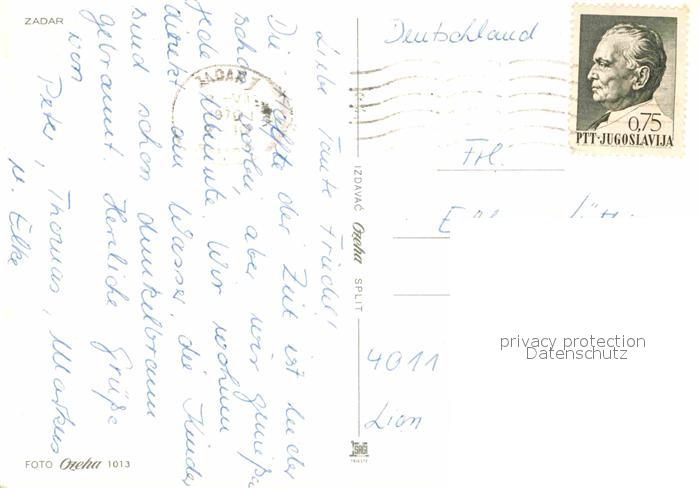 ZADAR
Liebe Tante Friedel!
Die Hälfte der Zeit ist leider
schon vorbei, aber wir genießen
jede Minute. Wir wohnen
direkt am Wasser, die Kinder
sind schon dunkelbraun
gebrannt. Herzliche Grüße
von
Peter, Thomas, Markus
u. Elke
FOTO Ozeha 1013
IZDAVAČ Ozeha SPLIT
TRIESTE
ZADAR
Deutschland
0,75
PTT-JUGOSLAVIJA
Frl.
4011
privacy protection
Datenschutz